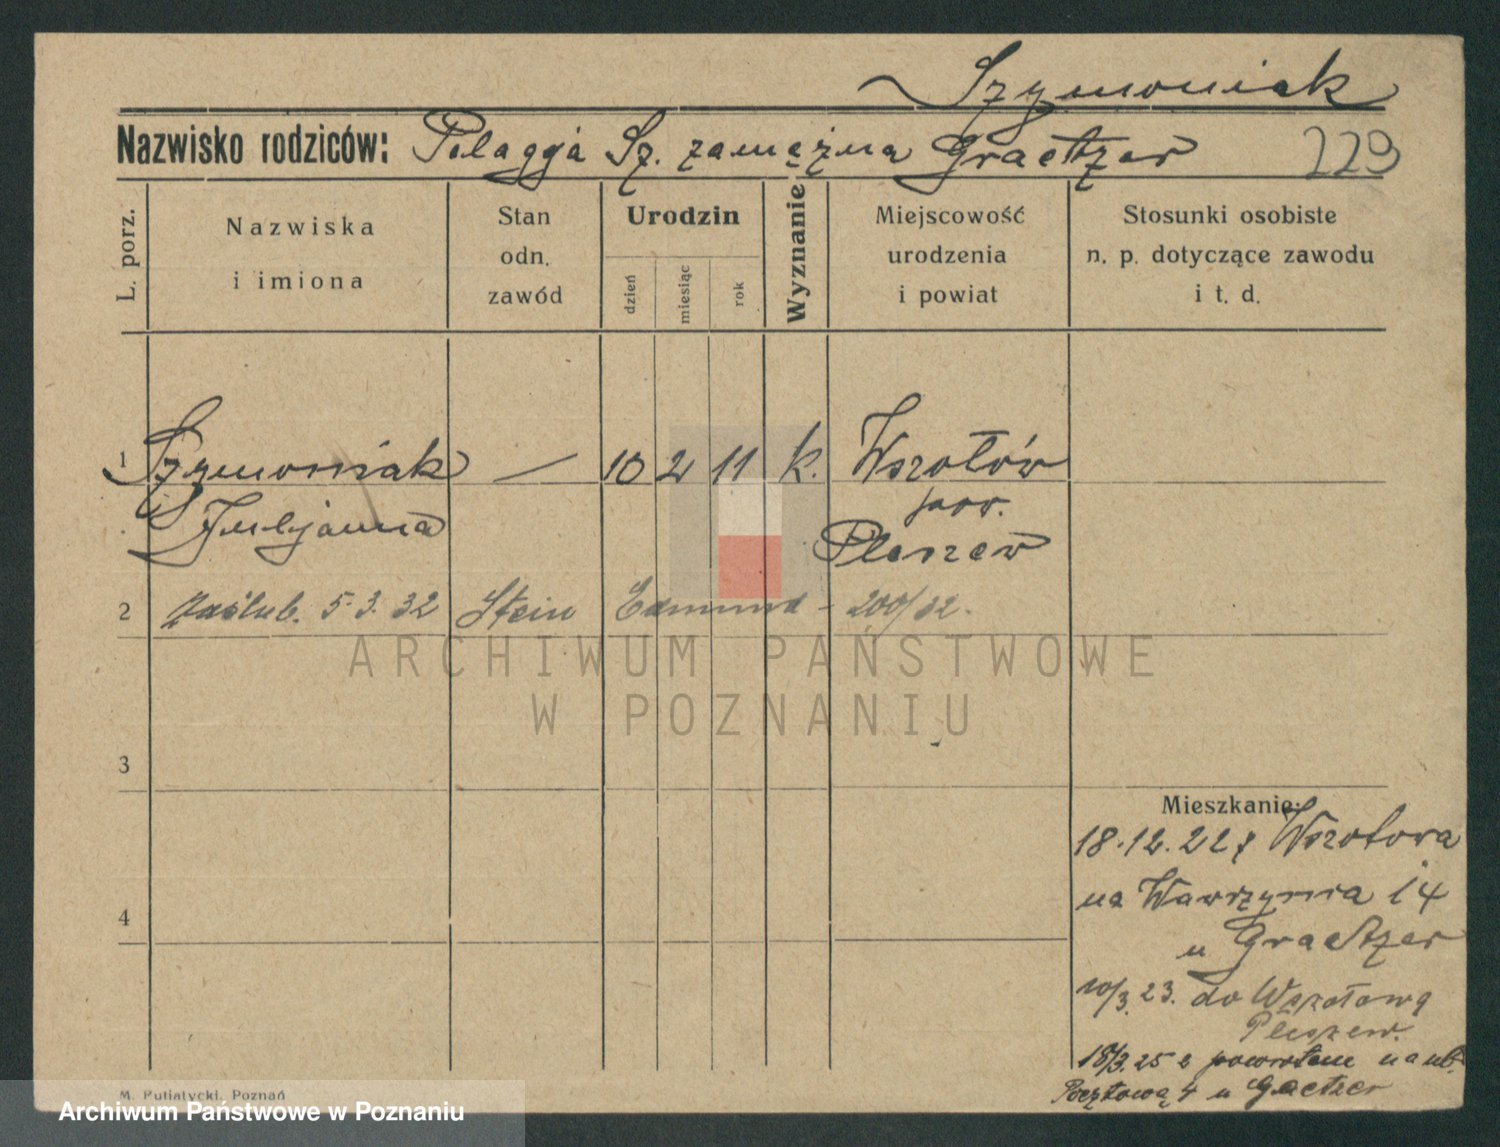 Szymoniak
Nazwisko rodziców: Pelagja Sz. zamężna Graetzer 229
L. porz.
Nazwiska
i imiona
Stan
odn.
zawód
Urodzin
dzień
miesiąc
rok
Wyznanie
Miejscowość
urodzenia
i powiat
Stosunki osobiste
n. p. dotyczące zawodu
i t. d.
1 Szymoniak — 10 2 11 k. Wszołów
Juljanna pow.
Pleszew
2 Zaślub. 5.3.32 Stein Edmund - 200/32.
ARCHIWUM PAŃSTWOWE
W POZNANIU
3
Mieszkanie:
18.12.22 z Wszołowa
na Wawrzyńca 14
4
u Graetzer
10/3.23. do Wszołowa
Pleszew.
18/3.25 z powrotem na ul.
Pocztową 4 u Graetzer
M. Putiatycki, Poznań
Archiwum Państwowe w Poznaniu